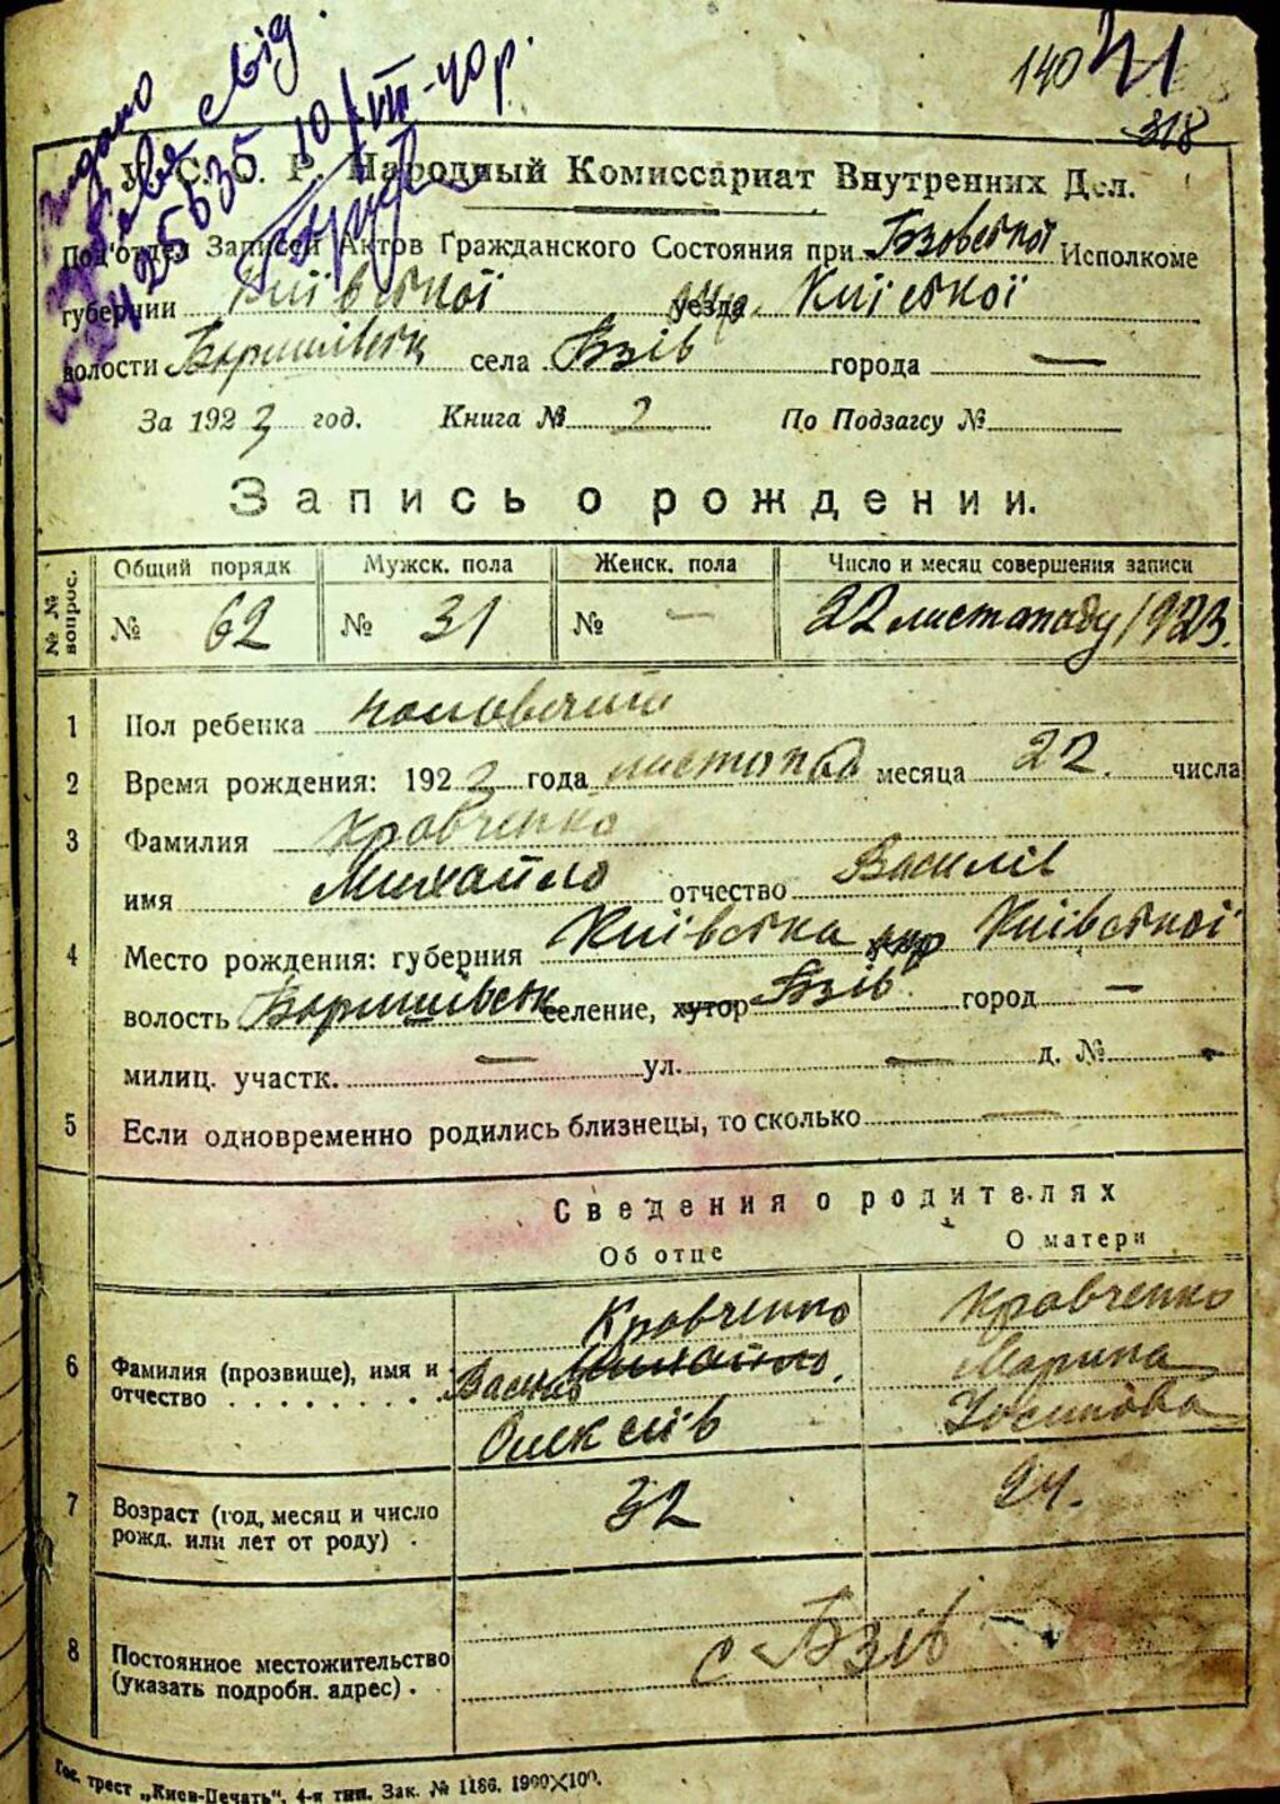 140 41
318
Видано
свід.
425635 10/VIII-40 р.
У. С. С. Р. Народный Комиссариат Внутренних Дел.
Под'отдел Записей Актов Гражданского Состояния при Бзовської Исполкоме
губернии Київської уезда окр. Київської
волости Боришівськ села Бзів города —
За 1923 год. Книга № 2 По Подзагсу №
Запись о рождении.
№ № вопрос. Общий порядк Мужск. пола Женск. пола Число и месяц совершения записи
№ 62 № 31 № — 22 листопаду 1923.
1 Пол ребенка чоловічий
2 Время рождения: 1923 года листопад месяца 22. числа
3 Фамилия Кравченко
имя Михайло отчество Василів
4 Место рождения: губерния Київська окр Київської
волость Боришівськ селение, хутор Бзів город —
милиц. участк. — ул. — д. № —
5 Если одновременно родились близнецы, то сколько —
Сведения о родителях
Об отце О матери
Кравченко Кравченко
6 Фамилия (прозвище), имя и отчество Василь Михайло. Марина
Олексіїв Йосипова
7 Возраст (год, месяц и число рожд. или лет от роду) 32 24.
8 Постоянное местожительство (указать подробн. адрес) с Бзів
Гос. трест „Киев-Печать", 4-я тип. Зак. № 1186. 1900X100.